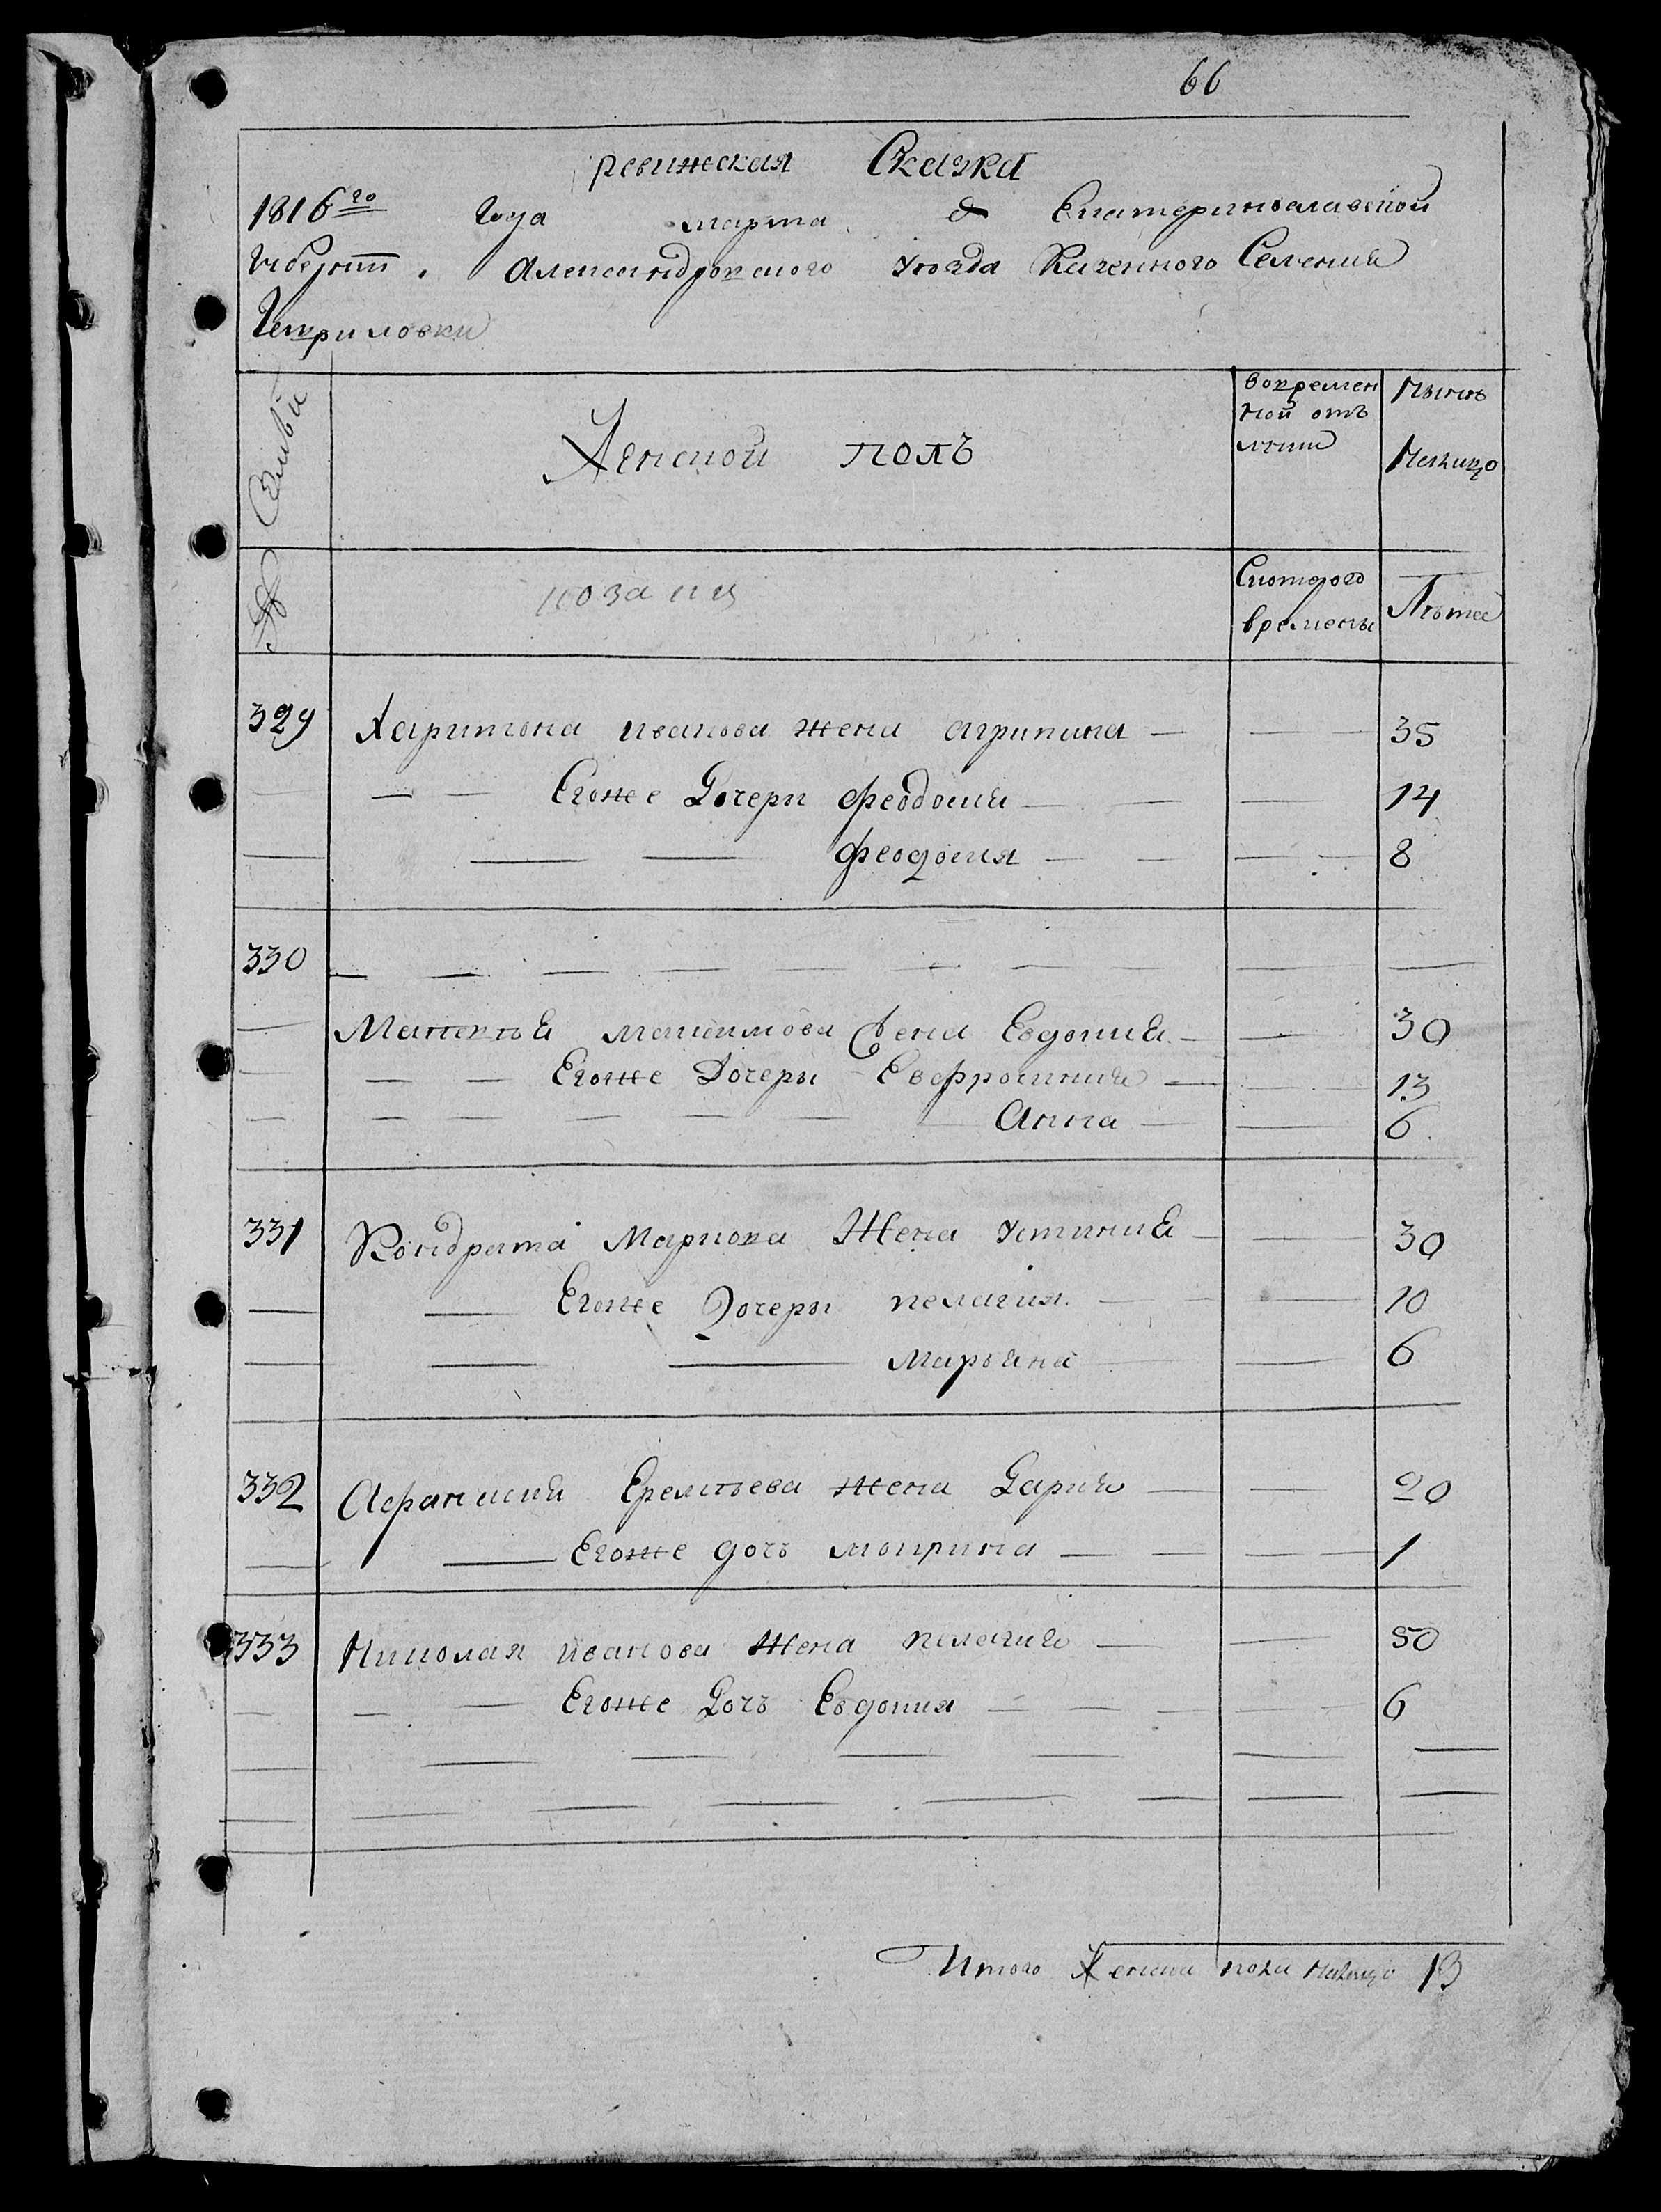 66
ревижская Сказка
1816го Года марта Екатеринославской
Губернии. Александровского уѣзда Казенного Селения
№ Семьи
Женской полъ
вовремен
ной отъ
лучки
Нынѣ
Налицо
Скоторого
времены
Лѣта
329 Харитона иванова жена агрипина 35
Егоже Дочери феодосия 14
феодосия 8
330
Матвѣя максимова Жена Евдокия 30
Егоже Дочери Евфросиния 13
Анна 6
331 Кондрата Маркова Жена устиния 30
Егоже Дочери пелагия 10
Марьяна 6
332 Афанисия Еремѣева жена Дария 20
Егоже дочъ мокрина 1
333 Николая иванова Жена пелагия 50
Егоже Дочъ Евдокия 6
Итого Женска пола налицо 13